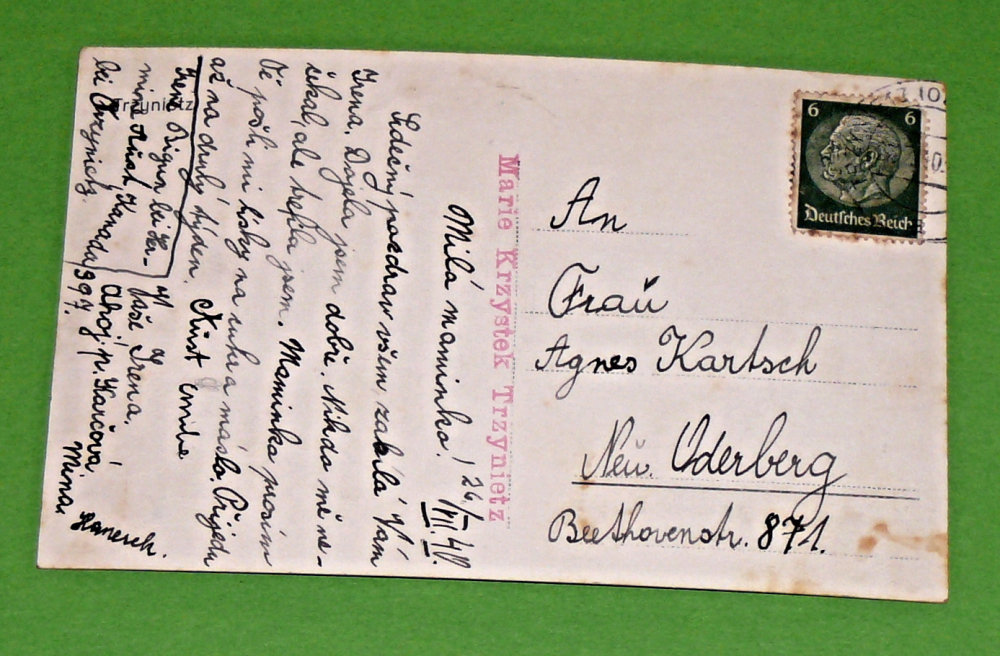 Trzynietz
26/VII. 40.
Milá maminko!
Srdečný pozdrav všem zasílá Vám
Irena. Dojela jsem dobře. Nikdo mě ne-
čekal, ale trefila jsem. Maminko prosím
Vě pošli mi lístky na cukr a máslo. Přijedu
až na druhý týden. Küst Emile
Vaše Irena.
bei Trzynietz.
Kanada 997.
Ahoj p. Karčová
Mina
Hanesch.
Marie Krzystek Trzynietz
6 6
Deutsches Reich
An
Frau
Agnes Kartsch
Neu. Oderberg
Beethovenstr. 871.